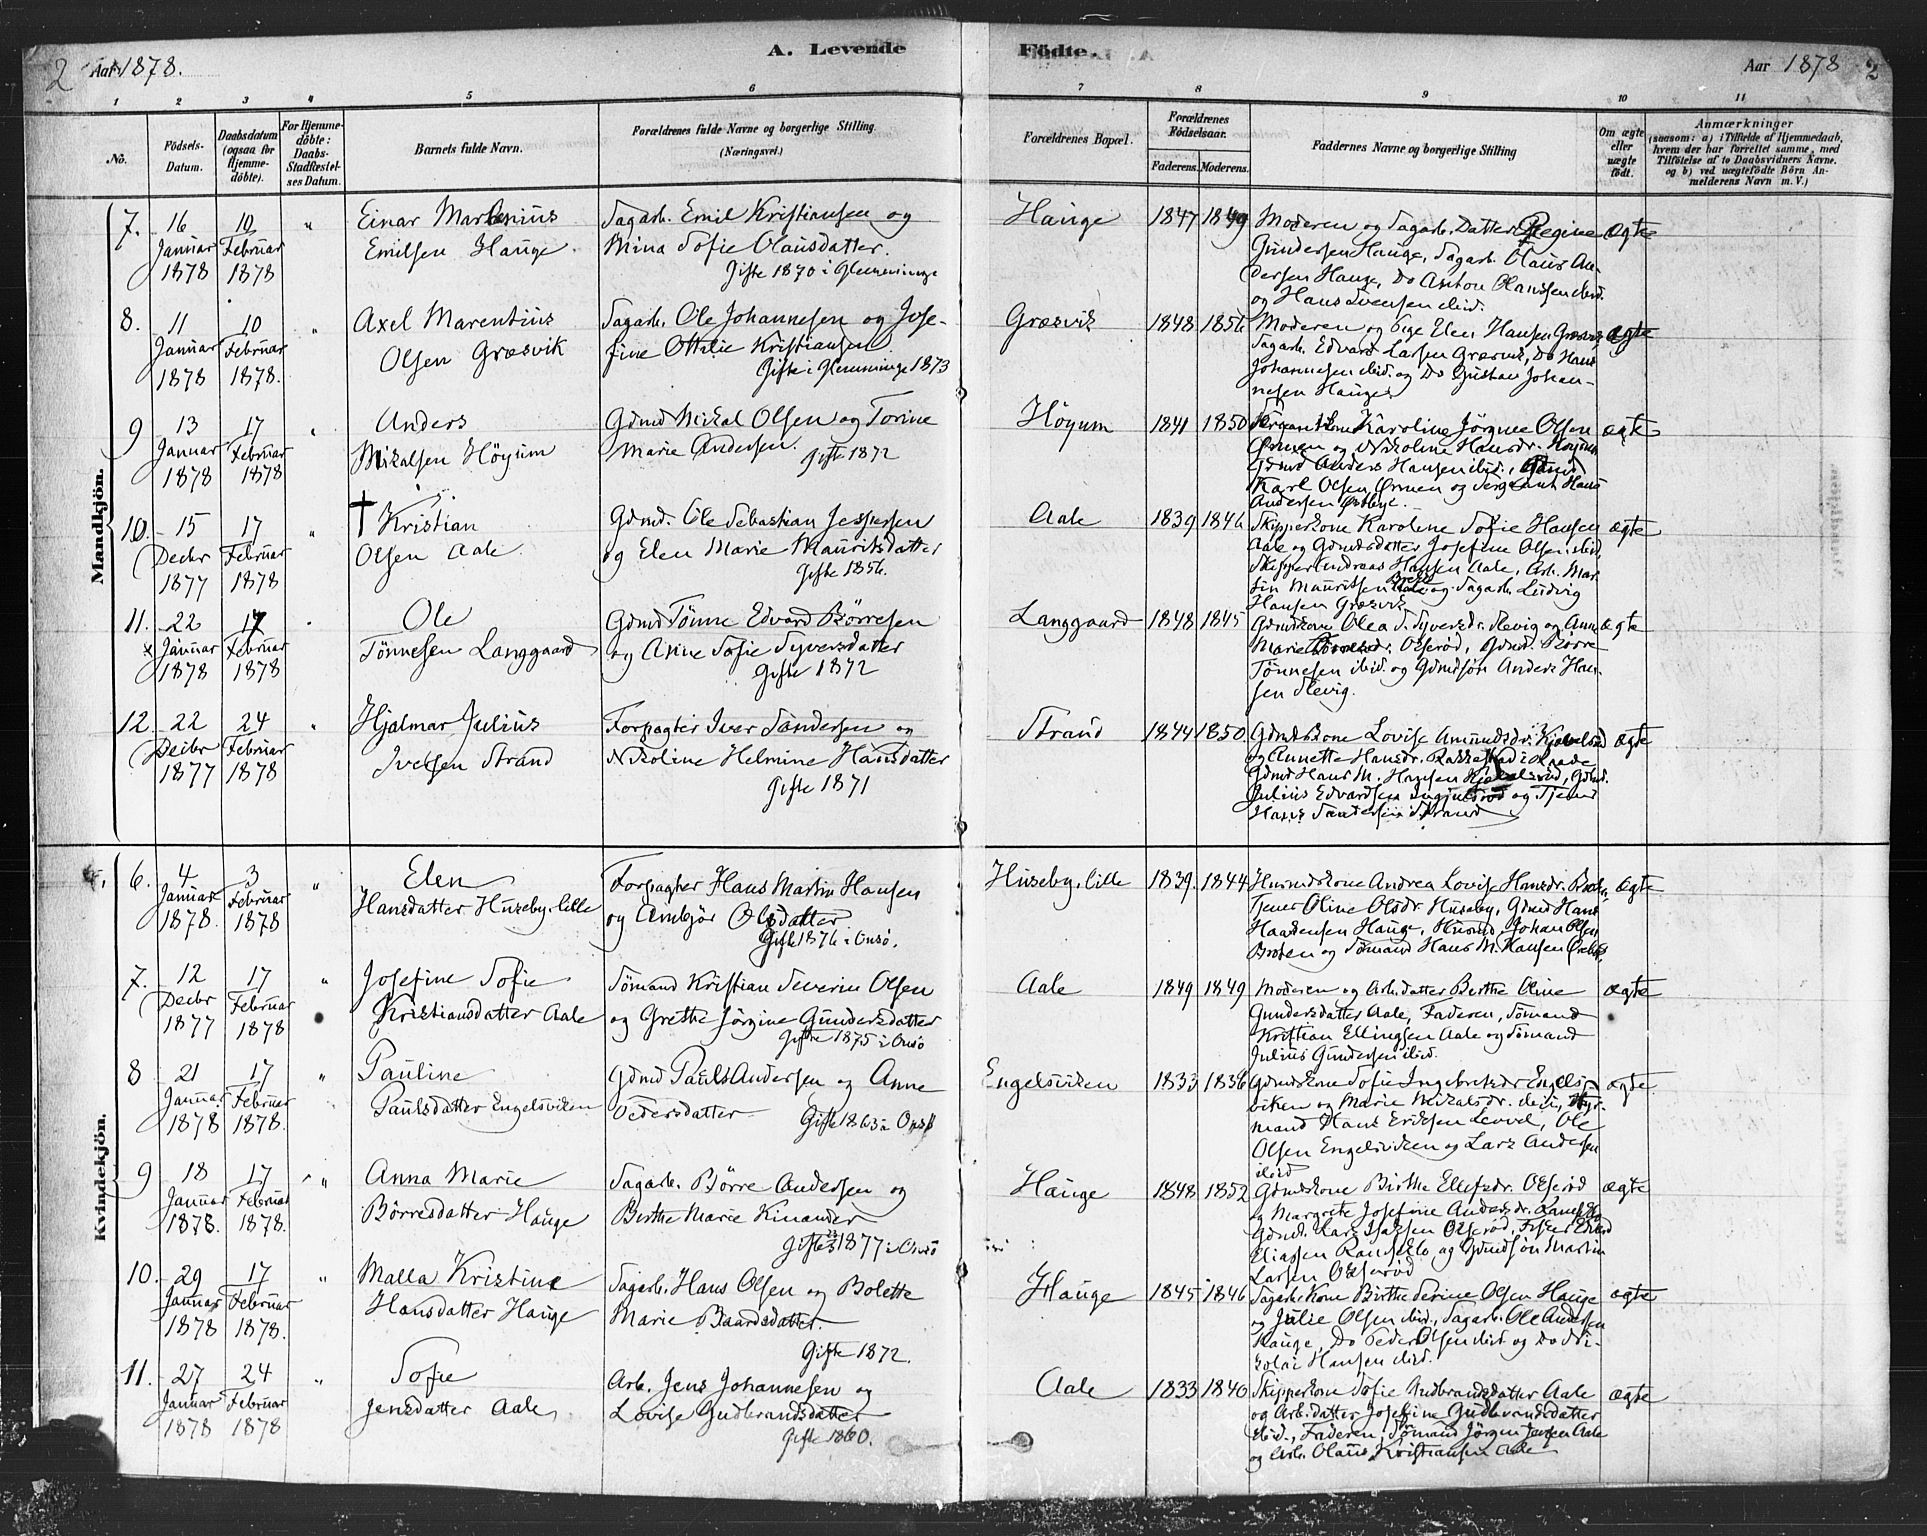 2 Aar 1878.
A. Levende
Födte.
Aar 1878 2
1 2 3 4 5 6 7 8 9 10 11
No.
Födsels-
Datum.
Daabsdatum
(ogsaa for
Hjemme-
döbte).
For Hjemme-
döbte:
Daabs-
Stadfæstel-
ses Datum.
Barnets fulde Navn.
Forældrenes fulde Navne og borgerlige Stilling.
(Næringsvei.)
Forældrenes Bopæl.
Forældrenes
Födselsaar.
Faderens. Moderens.
Faddernes Navne og borgerlige Stilling
Om ægte
eller
uægte
födt.
Anmærkninger
(saasom: a) i Tilfælde af Hjemmedaab,
hvem der har forrettet samme, med
Tilföielse af to Daabsvidners Navne.
og b) ved uægtefödte Börn An-
melderens Navn m. V.)
Mandkjön.
7. 16 Januar 1878
10 Februar 1878
"
Einar Martenius
Emilsen Hauge.
Sagarb. Emil Kristiansen og
Mina Sofie Olausdatter.
Gifte 1870 i Glemminge
Hauge 1847 1849
Moderen og Sagarb. Datter Regine
Gundersen Hauge, Sagarb. Olaus An-
dersen Hauge, Do Anton Olaussen ibid.
og Hans Svensen ibid.
ægte
8. 11 Januar 1878
10 Februar 1878.
"
Axel Marentius
Olsen Græsvik
Sagarb. Ole Johannesen og Jose-
fine Ottilie Kristiansen
Gifte i Glemminge 1873
Græsvik 1848 1856
Moderen og Pige Elen Hansen Græsvik
Sagarb. Edvard Larsen Græsvik, Do Hans
Johannesen ibid. og Do Gustav Johan-
nesen Hauge
ægte
9 13 Januar 1878
17 Februar 1878
"
Anders
Mikalsen Höyum
Gdmd Mikal Olsen og Torine
Marie Andersen. Gifte 1872
Höyum 1841 1850
Karoline Jörgine Olsen
Örmen og Nikoline Hansdr. Höyum
Gdmd Anders Hansen ibid., Gdmd
Karl Olsen Örmen og Sergeant Hans
Andersen Östbye.
ægte
10. 15 Decbr 1877
17 Februar 1878
"
† Kristian
Olsen Aale.
Gdmd. Ole Sebastian Jespersen
og Elen Marie Mauritsdatter
Gifte 1856.
Aale 1839 1846
Skipperkone Karoline Sofie Hansen
Aale og Gdmdsdatter Josefine Olsen ibid,
Skipper Andreas Hansen Aale, Arb. Mar-
tin Mauritsen og Sagarb. Ludvig
Hansen Græsvik
ægte
11. 22 Januar 1878
17 Februar 1878
"
Ole
Tönnesen Langgaard
Gdmd Tönne Edvard Börresen
og Anne Sofie Syversdatter
Gifte 1872
Langgaard 1848 1845
Gdmdkone Olea S. Syversdr. Slevig og Anne
Marie Olseröd, Gdmd. Börre
Tönnesen ibid. og Gdmdsön Anders Han-
sen Slevig.
ægte
12. 22 Decbr 1877
24 Februar 1878
"
Hjalmar Julius
Iversen Strand
Forpagter Iver Sandersen og
Nikoline Helmine Hansdatter
Gifte 1871
Strand 1844 1850.
Gdmdskone Lovise Amundsdr. Kjölsröd
og Annette Hansdr. Rakkestad i Raade
Gdmd Hans M. Hansen Kjölsröd, Gdmd.
Julius Edvardsen Ingjulsröd og Tjener
Hans Sandersen Strand
ægte
Kvindekjön.
6. 4 Januar 1878.
3 Februar 1878
"
Elen
Hansdatter Huseby. lille
Forpagter Hans Martin Hansen
og Ambjör Olsdatter
Gifte 1876 i Onsö.
Huseby. lille 1839. 1844
Husmdskone Andrea Lovise Hansdr. Braten
Tjener Oline Olsdr. Huseby, Gdmd Hans
Haagensen Hauge, Husmd. Johan Olsen
Braten og Sömand Hans M. Hansen
ægte
7. 12 Decbr 1877
17 Februar 1878
"
Josefine Sofie
Kristiansdatter Aale
Sömand Kristian Severin Olsen
og Grethe Jörgine Gundersdatter
Gifte 1875 i Onsö
Aale 1849 1849
Moderen og Arb. datter Berthe Oline
Gundersdatter Aale, Faderen, Sömand
Kristian Ellingsen Aale og Sömand
Julius Gundersen ibid.
ægte
8 21 Januar 1878
17 Februar 1878.
"
Pauline
Paulsdatter Engelsviken
Gdmd Pauls Andersen og Anne
Pedersdatter Gifte 1863 i Onsö
Engelsviken 1833 1836
Gdmdskone Sofie Ingebretsdr Engels-
viken og Marie Mikalsdr. ibid, Styr-
mand Hans Eriksen Levvel, Ole
Olsen Engelsviken og Lars Andersen
ibid
ægte
9 18 Januar 1878.
17 Februar 1878.
"
Anna Marie
Börresdatter Hauge
Sagarb. Börre Andersen og
Berthe Marie Kinander
Gifte 1877 i Onsö
Hauge 1848 1852
Gdmdskone Birthe Ellefsdr. Olseröd
og Margrete Josefine Andersdr. Ramsklo
Gdmd. Lars Isaksen Olseröd, Fisker Edvard
Eliassen Ramsklo og Gdmdsön Martin
Larsen Olseröd
ægte
10. 29 Januar 1878
17 Februar 1878.
"
Malla Kristine
Hansdatter Hauge
Sagarb. Hans Olsen og Bolette
Marie Baardsdatter.
Gifte 1872.
Hauge 1845 1846
Sagarb. Kone Birthe Serine Olsen Hauge
og Julie Olsen ibid., Sagarb. Ole Andersen
Hauge, Do Peder Olsen ibid og Do Ni-
kolai Hansen ibid.
ægte
11. 27 Januar 1878
24 Februar 1878
"
Sofie
Jensdatter Aale
Arb. Jens Johannesen og
Lovise Gudbrandsdatter
Gifte 1860.
Aale 1833 1840
Skipperkone Sofie Gudbrandsdatter Aale
og Arb. datter Josefine Gudbrandsdatter
ibid., Faderen, Sömand Jörgen Jensen Aale
og Arb. Olaus Kristiansen Aale
ægte